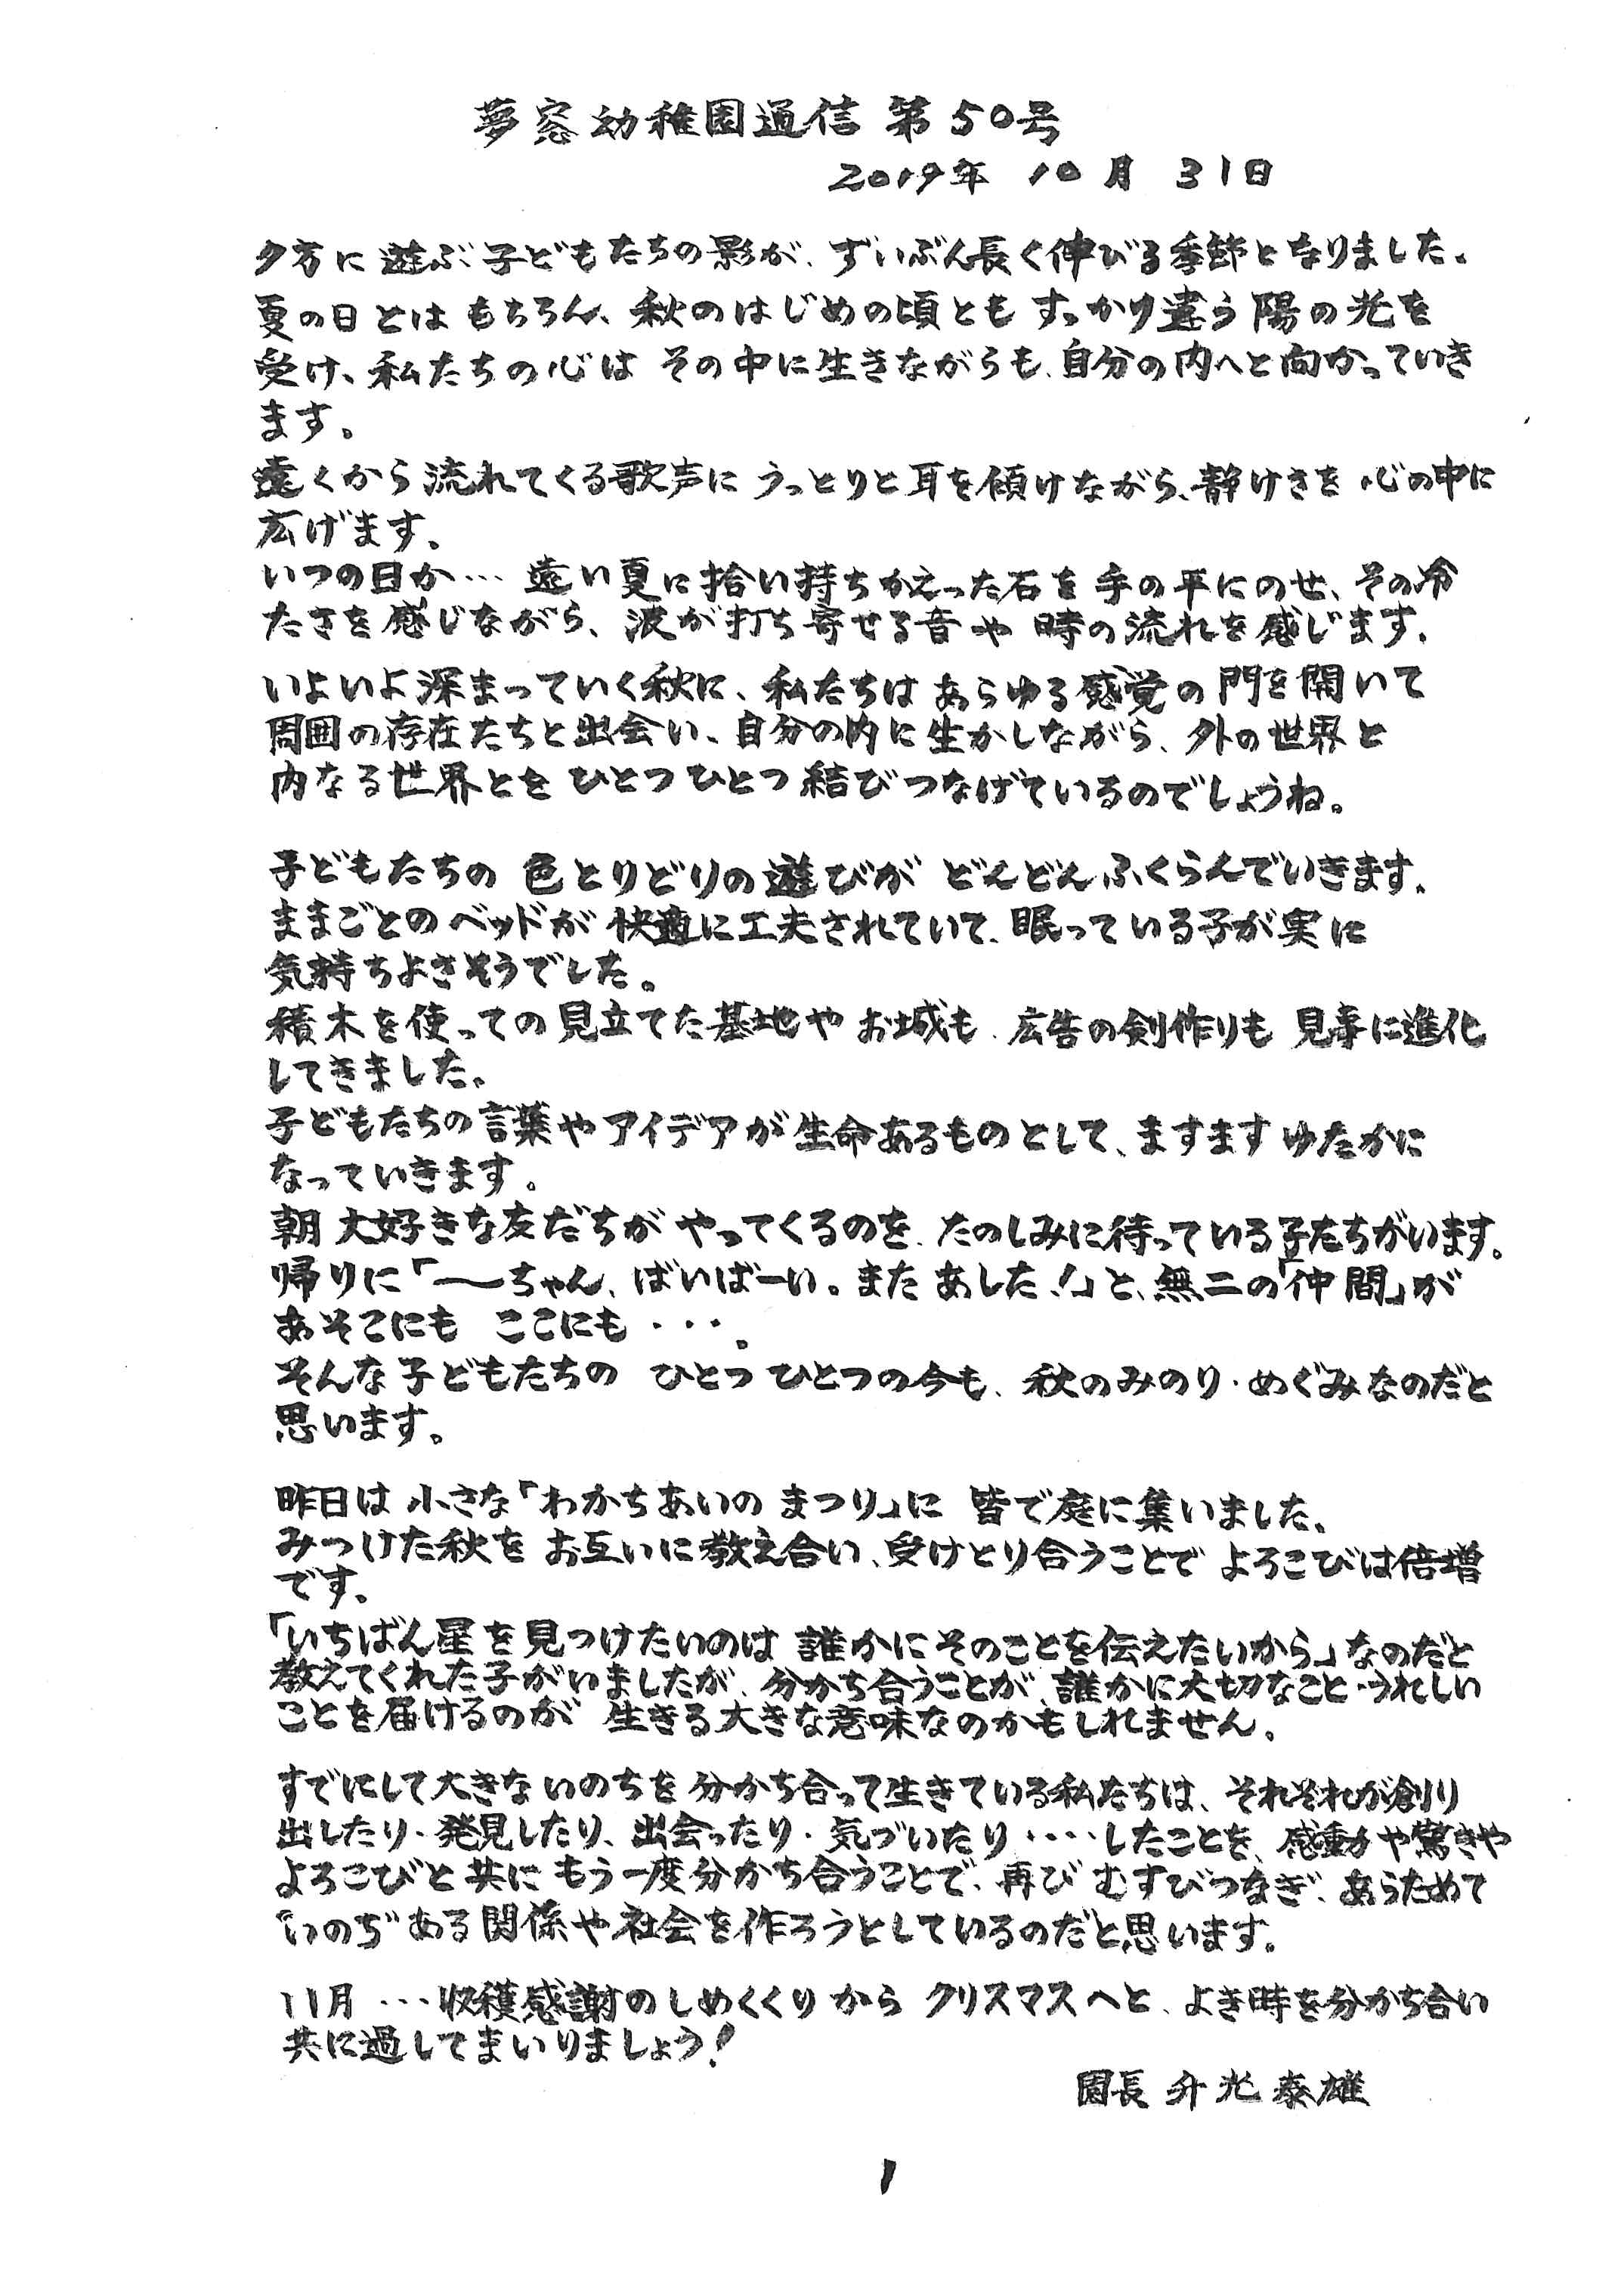 夢窓幼稚園通信 第50号
2019年 10月 31日
夕方に遊ぶ子どもたちの影が、ずいぶん長く伸びる季節となりました。
夏の日とはもちろん、秋のはじめの頃ともすっかり違う陽の光を
受け、私たちの心は その中に生きながらも、自分の内へと向かっていき
ます。
遠くから流れてくる歌声にうっとりと耳を傾けながら、静けさを心の中に
広げます。
いつの日か… 遠い夏に拾い持ちかえった石を手の平にのせ、その冷
たさを感じながら、波が打ち寄せる音や 時の流れを感じます。
いよいよ深まっていく秋に、私たちはあらゆる感覚の門を開いて
周囲の存在たちと出会い、自分の内に生かしながら、外の世界と
内なる世界とをひとつひとつ結びつなげているのでしょうね。
子どもたちの 色とりどりの遊びが どんどんふくらんでいきます。
ままごとのベッドが快適に工夫されていて、眠っている子が実に
気持ちよさそうでした。
積木を使っての見立てた基地やお城も、広告の剣作りも 見事に進化
してきました。
子どもたちの言葉やアイデアが生命あるものとして、ますますゆたかに
なっていきます。
朝大好きな友だちがやってくるのを、たのしみに待っている子たちがいます。
帰りに「〜ちゃん、ばいばーい。またあした!」と、無二の「仲間」が
あそこにも ここにも・・・。
そんな子どもたちの ひとつひとつの今も、秋のみのり・めぐみなのだと
思います。
昨日は小さな「わかちあいのまつり」に 皆で庭に集いました。
みつけた秋をお互いに教え合い、受けとり合うことでよろこびは倍増
です。
「いちばん星を見つけたいのは 誰かにそのことを伝えたいから」なのだと
教えてくれた子がいましたが、分かち合うことが、誰かに大切なこと・うれしい
ことを届けるのが 生きる大きな意味なのかもしれません。
すでにして大きないのちを分かち合って生きている私たちは、それぞれが創り
出したり・発見したり、出会ったり・気づいたり・・・・したことを、感動や驚きや
よろこびと共にもう一度分かち合うことで、再びむすびつなぎ、あらためて
"いのち"ある関係や社会を作ろうとしているのだと思います。
11月…収穫感謝のしめくくりから クリスマスへと、よき時を分かち合い
共に過してまいりましょう!
園長 升光泰雄
1